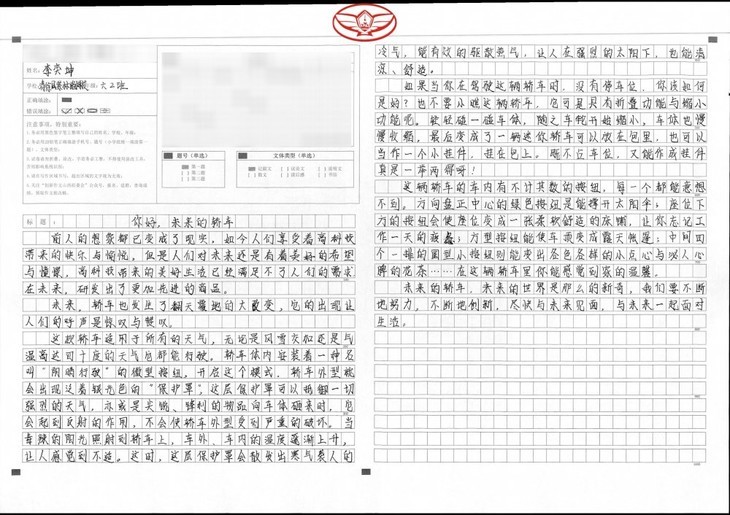 姓名：李奕坤
六2班
正确填涂：
错误填涂：
注意事项，特别重要：
题号（单选）
第一题
第二题
第三题
文体类型（单选）
记叙文
议论文
说明文
散文
标题：
你好，未来的轿车
前人的想象都已变成了现实，如今人们享受着高科技
带来的快乐与愉悦，但是人们对未来还是有着美好的希望
与憧憬，高科技带来的美好生活已经满足不了人们的需求
在未来，研发出了更加先进的商品。
未来，轿车也发生了翻天覆地的大改变，它的出现让
人们的呼声是惊叹与赞叹。
这款轿车适用于所有的天气，无论是风雪交加还是气
温高达四十度的天气它都能行驶，轿车体内安装着一种名
叫“阴晴行驶”的微型按钮，开启这个模式，轿车外型就
会出现泛着银光色的“保护罩”，这层保护罩可以抵御一切
强烈的天气，亦或是尖锐、锋利的物品向车体砸来时，它
会起到反射的作用，不会使轿车外型受到严重的破坏。当
毒辣的阳光照射到轿车上，车外、车内的温度逐渐上升，
让人感觉到不适。这时，这层保护罩会散发出寒气袭人的
冷气，能有效的驱散热气，让人在强烈的太阳下，也能清
凉、舒适。
如果当你在驾驶这辆轿车时，没有停车位，你该如何
是好？也不要小瞧这辆轿车，它可是具有折叠功能与缩小
功能呢，轻轻碰一碰车体，随之车轮开始缩小，车体也慢
慢收瘪，最后变成了一辆迷你轿车可以放在包里，也可以
当作一个小挂件，挂在包上。既不占车位，又能作成挂件
真是一举两得呀！
这辆轿车的车内有不计其数的按钮，每一个都能意想
不到。方向盘正中心的绿色按钮是能撑开太阳伞；座位下
方的按钮会使座位变成一张柔软舒适的床铺，让你忘记工
作一天的疲惫；方型按钮能使车顶变成露天帐篷；中间四
个一排的圆型小按钮则能变出各色各样的小点心与沁人心
脾的花茶……在这辆轿车里你能感觉到家的温馨。
未来的轿车，未来的世界是那么的新奇，我们要不断
地努力，不断地创新，尽快与未来见面，与未来一起面对
生活。